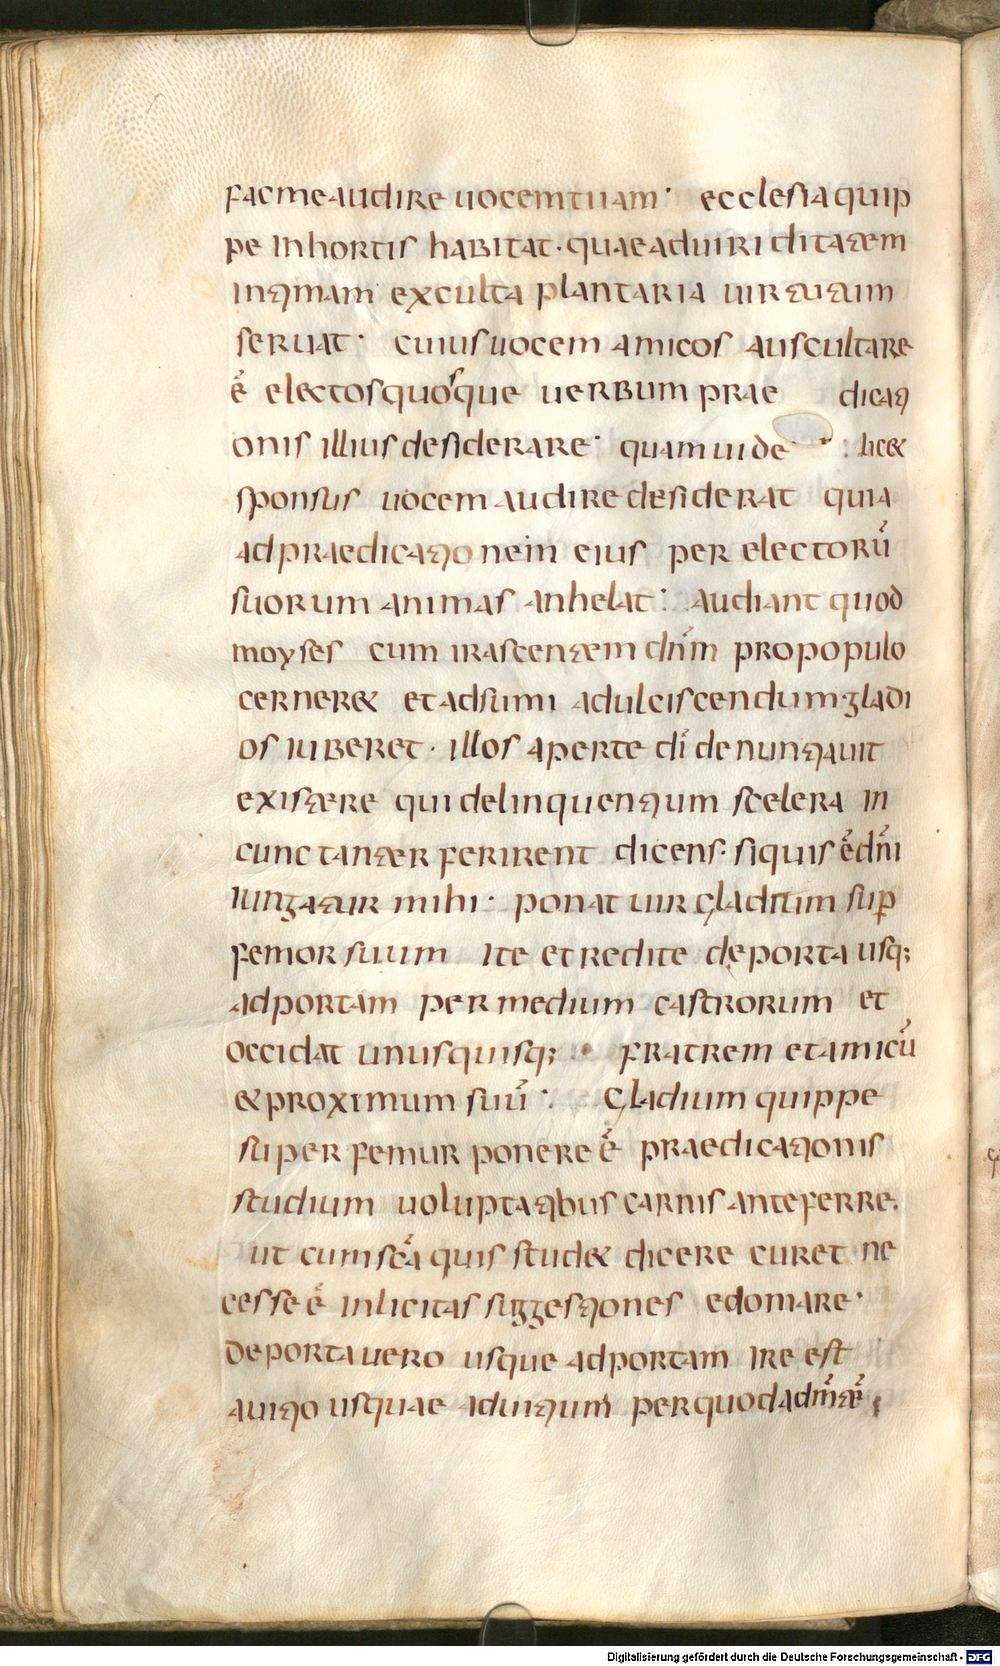 facmeaudire uocemtuam· ecclesia quip
pe inhortis habitat· quaeaduiriditatem
inqmam exculta plantaria uirtutum
seruat· cuius uocem amicos auscultare
ē electosquosque uerbum prae dicati
onis illius desiderare· quam uide licet
sponsus uocem audire desiderat quia
adpraedicationem eius per electorū
suorum animas anhelat: Audiant quod
moyses cum irascentem dnm̄ propopulo
cerneret et adsumi adulciscendum gladi
os iuberet· illos aperte dī denuntiauit
existere qui delinquentium scelera in
cunctanter ferirent dicens· siquis ē dnī
iungatur mihi· ponat uir gladium sup
femor suum ite et redite deporta usq;
adportam per medium castrorum et
occidat unusquisq; fratrem et amicū
&proximum suū· Gladium quippe
super femur ponere ē praedicationis
studium uoluptatibus carnis anteferre.
ut cum scā quis stud& dicere curet ne
cesse ē inlicitas suggestiones edomare·
deporta uero usque adportam ire est
auitio usquae aduitium perquod ad